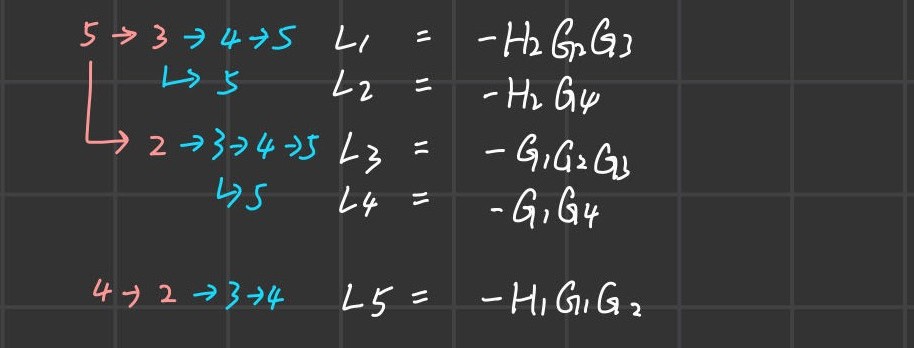 5 → 3 → 4 → 5 L1 = -H2 G2 G3
↳ 5 L2 = -H2 G4
↳ 2 → 3 → 4 → 5 L3 = -G1G2G3
↳ 5 L4 = -G1G4
4 → 2 → 3 → 4 L5 = -H1G1G2